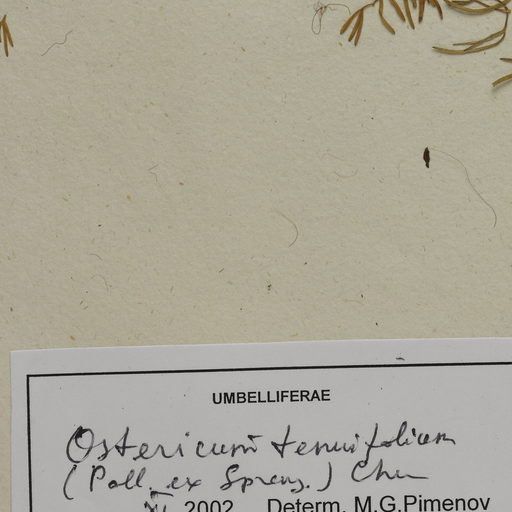 UMBELLIFERAE
Ostericum tenuifolium
(Pall. ex Spreng.) Chu
XI 2002 Determ. M.G.Pimenov